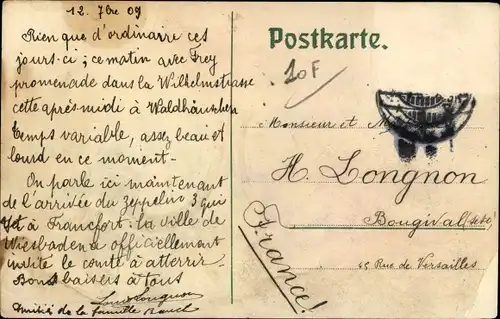 12. 7bre 09
Rien que d'ordinaire ces
jours-ci ; ce matin avec Frey
promenade dans la Wilhelmstrasse
cette après midi à Waldhäuschen
Temps variable, assez beau et
lourd en ce moment -
On parle ici maintenant
de l'arrivée du zeppelin 3 qui
est à Francfort : la ville de
Wiesbaden a officiellement
invité le comte à atterrir.
Bons baisers à tous
Louis Longnon
Amitiés de la famille
Postkarte.
10F
Monsieur et
H. Longnon
Bougival
45 Rue de Versailles
France!